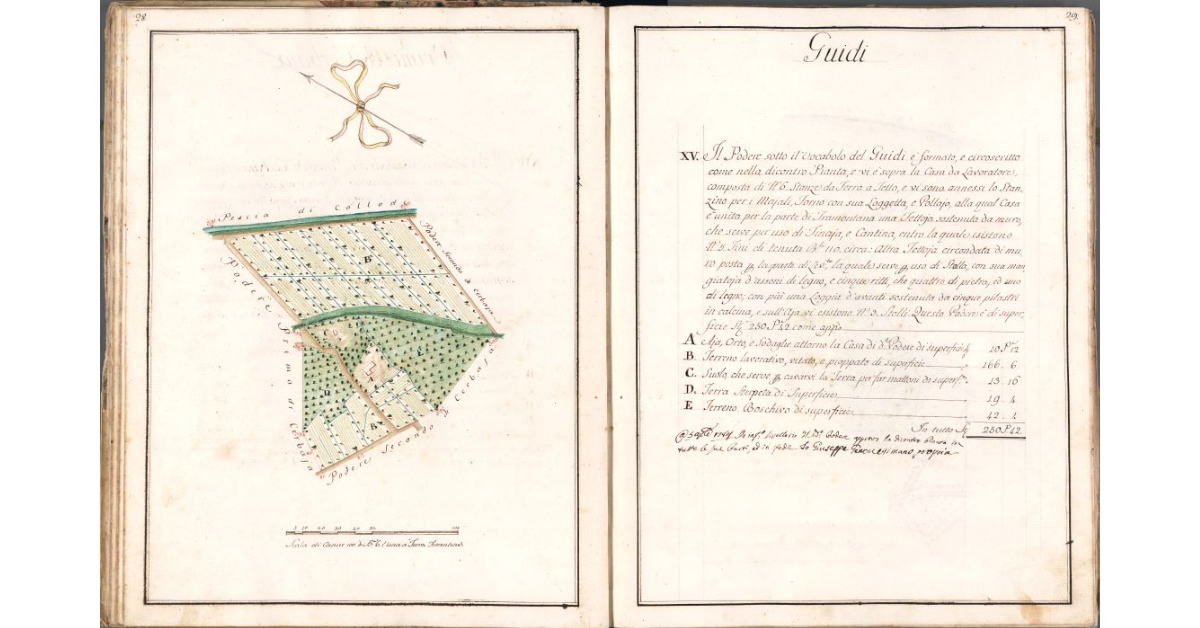 28
Pescia di Collodi
Podere Secondo di Cerbaja
Podere Primo di Cerbaja
Podere Secondo di Cerbaja
B
E
D
B
100
Scala di Canne 100 di a Terra Fiorentina
29
Guidi
XV. Il Podere sotto il Vocabolo del Guidi è formato, e circoscritto
come nella dicontro Pianta, e vi è sopra la Casa da Lavoratore,
composta di N.º 6. Stanze da Terra a Tetto, e vi sono annessi lo Stan-
zino per i Majali, Forno con sua Loggetta, e Pollajo, alla qual Casa
è unita per la parte di Tramontana una Tettoja sostenuta da muro,
che serve per uso di Tinaja, e Cantina, entro la quale esistono
N.º 3. Tini di tenuta B.li 110, circa: Altra Tettoja circondata di mu-
ro posta p. la parte di Lev.te la quale serve p. uso di Stalla, con sua man-
giatoja d'assoni di legno, e cinque ritti, che quattro di pietra, ed uno
di legno; con più una Loggia d'avanti sostenuta da cinque pilastri
in calcina, e sull'Aja vi esistono N.º 3. Stolli: Questo Podere è di super-
ficie 250 P. 42 come app.o
A Aja, Orto, e Sodaglie attorno la Casa di d.º Podere di superficie 10 P. 12
B. Terreno lavorativo, vitato, e pioppato di superficie 166. 6
C. Suolo, che serve p. cavarvi la Terra per far mattoni di superf.e 13. 16
D. Terra Sterpeta di Superficie 19. 4
E Terreno Boschivo di superficie 42. 4
In tutto 250 P. 42
Io Giuseppe mano propria